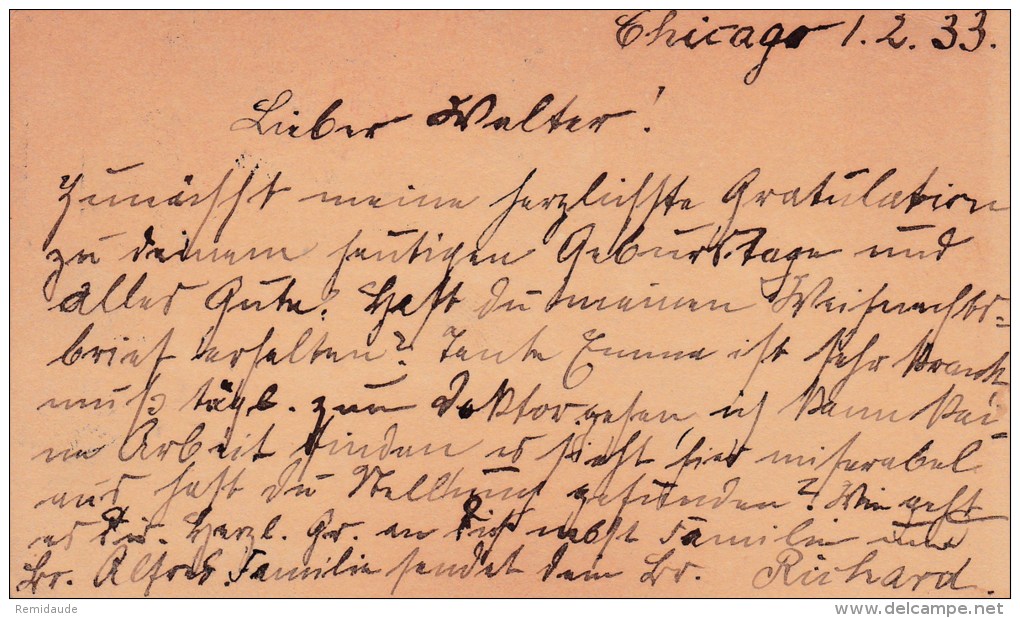 Chicago 1.2.33.
Lieber Walter!
Zunächst meine herzlichste Gratulation
zu deinem heutigen Geburtstage und
alles Gute. Hast du meinen Weihnachts=
brief erhalten? Tante Emma ist sehr krank
muß tägl. zum Doktor gehen, ich kann kei
ne Arbeit finden es sieht hier miserabel
aus hast du Stellung gefunden? Wie geht
es Dir. Herzl. Gr. an Dich nebst Familie und
Br. Alfreds Familie sendet dein Br. Richard.
Remidaude
delcampe.net